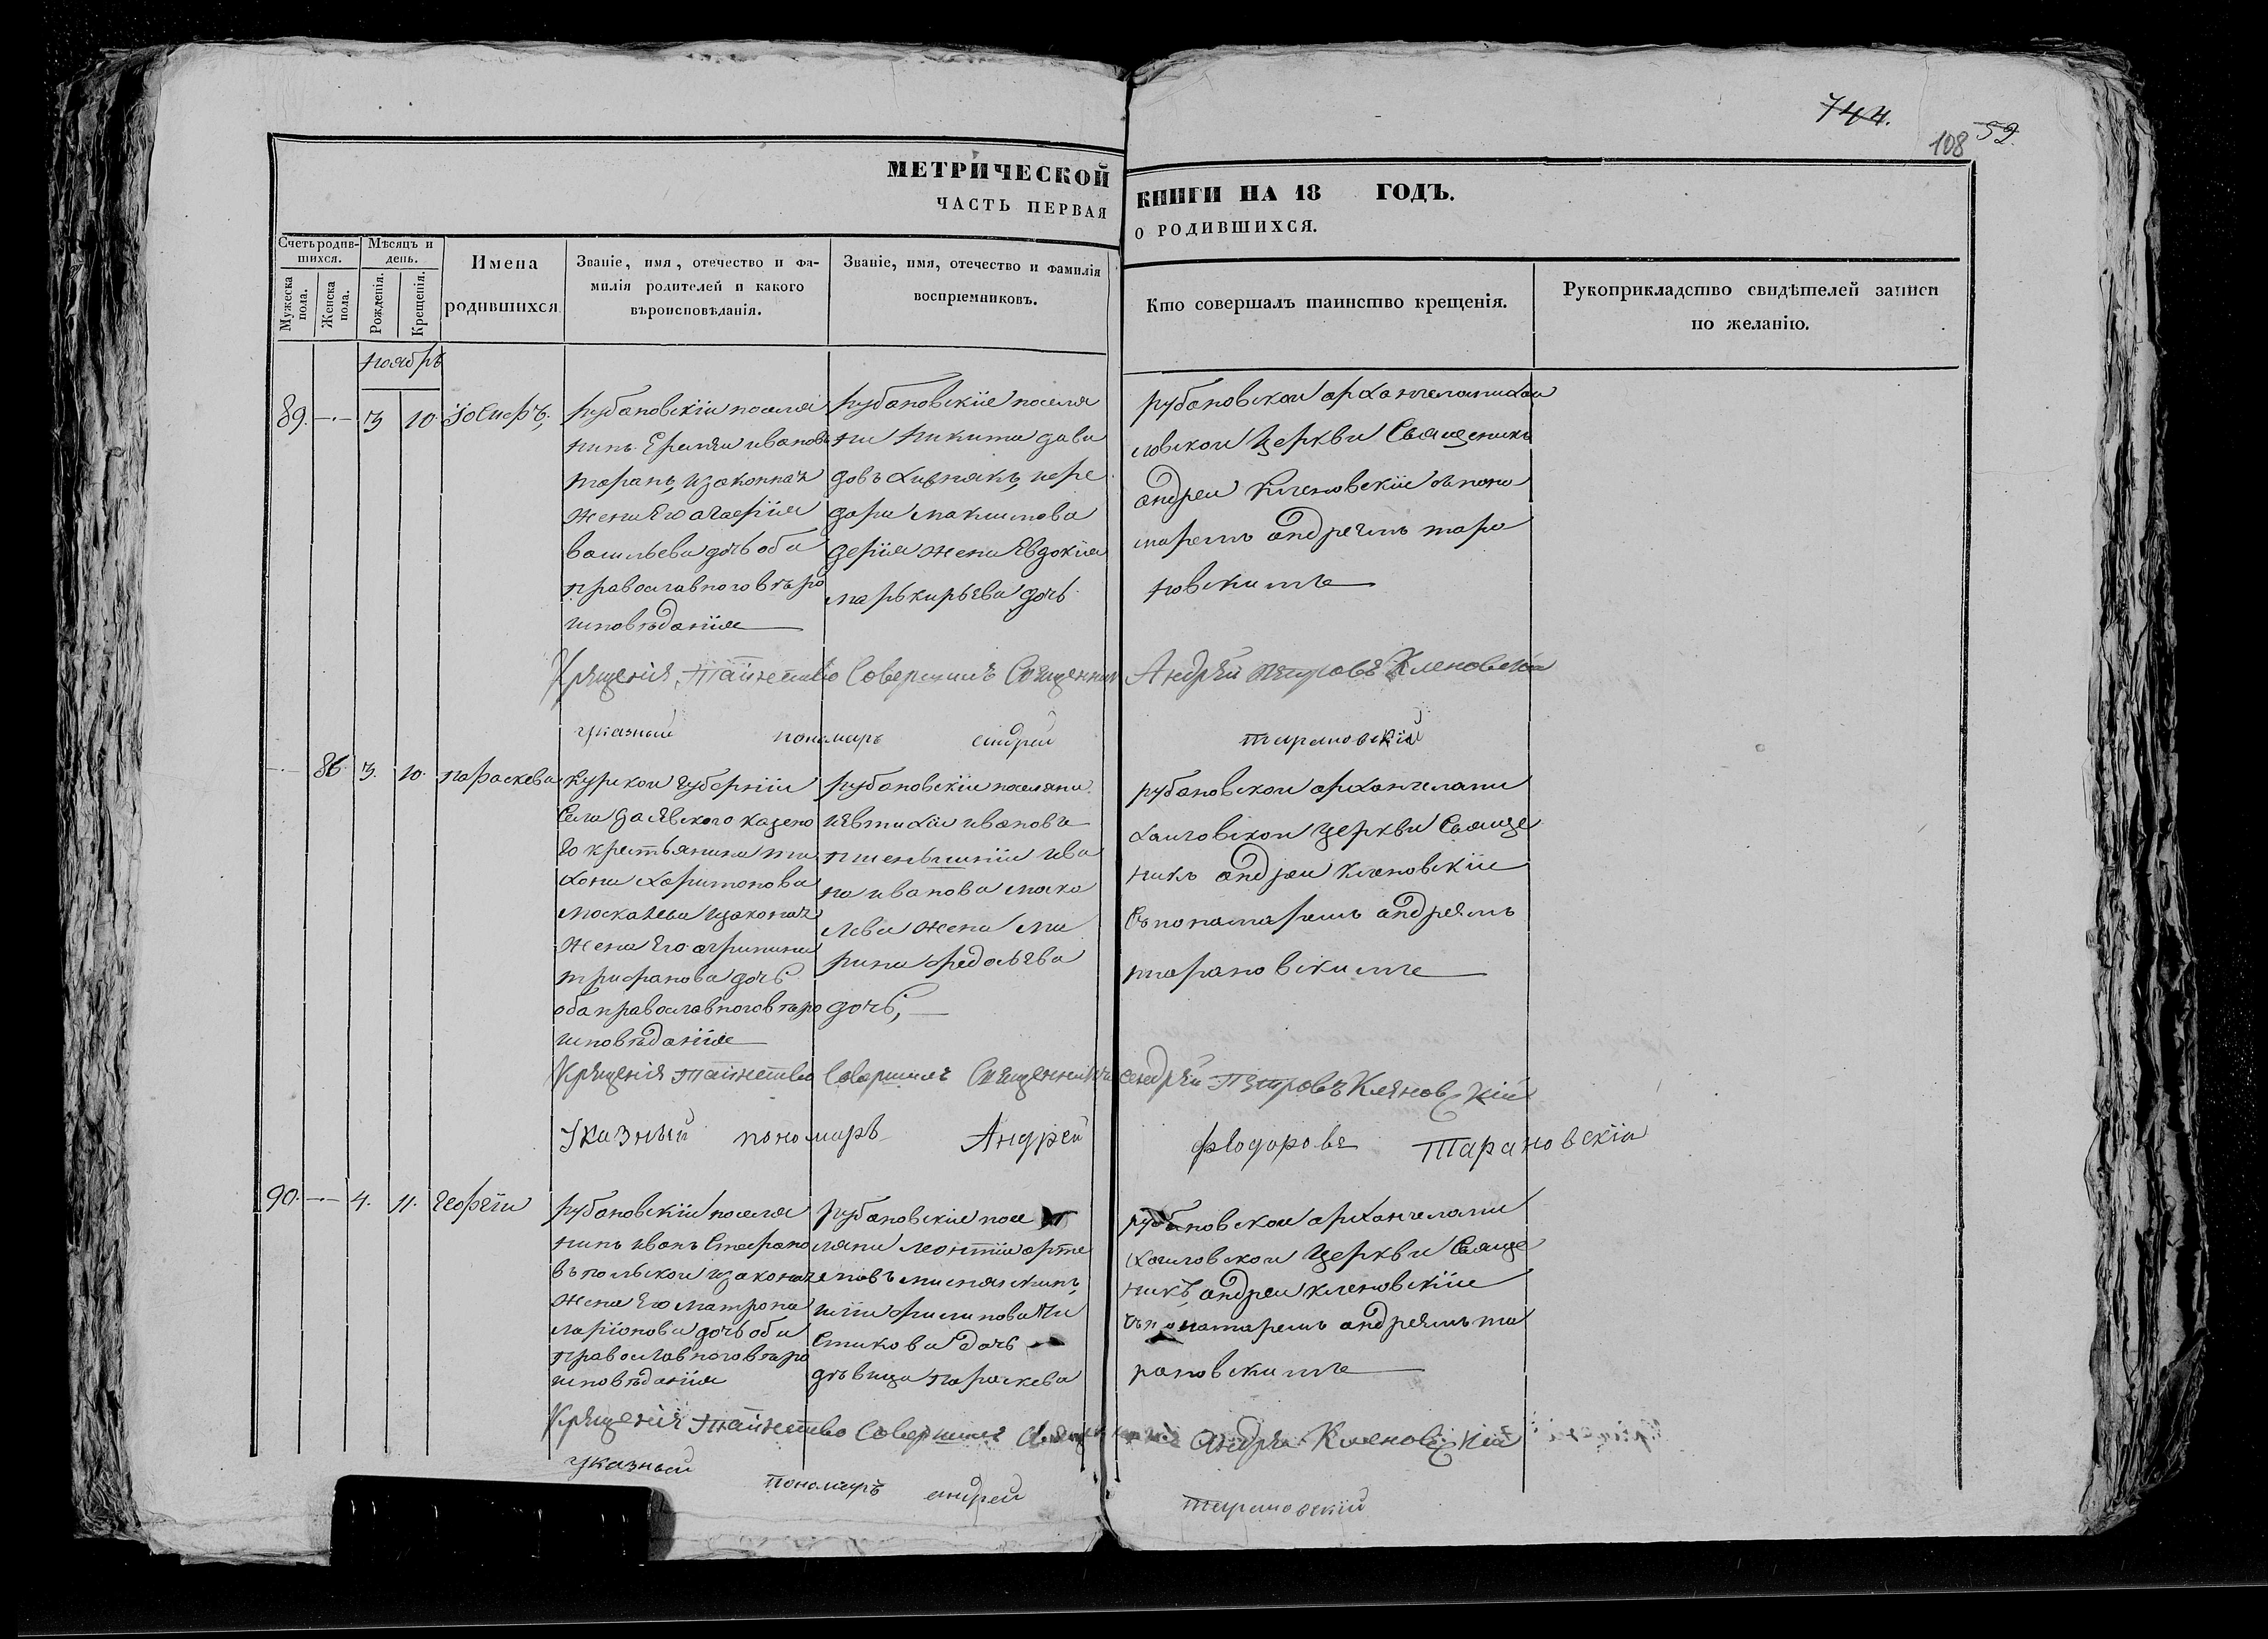 744.
108 59.
МЕТРИЧЕСКОЙ
ЧАСТЬ ПЕРВАЯ
КНИГИ НА 18 ГОДЪ.
О РОДИВШИХСЯ.
Счетъ родив-
шихся.
Мужеска
пола.
Женска
пола.
Мѣсяцъ и
день.
Рожденія.
Крещенія.
Имена
родившихся
Званіе, имя, отечество и фа-
милія родителей и какого
вѣроисповѣданія.
Званіе, имя, отечество и фамилія
воспріемниковъ.
Кто совершалъ таинство крещенія.
Рукоприкладство свидѣтелей записи
по желанію.
ноябръ
89. -·- 3 10 Іосифъ,
рубановскіи поселя
нинъ Еремѣи ивановъ
таранъ, и законная
жена Его
васильева дочь оба
православного вѣро
исповѣданія
рубановскіе поселя
ни никита дави
довъ
максимова
жена Евдокія
дочь
рубановскои архангеломихаи
ловскои церкви Священикъ
андреи кленовскіи съ поно
маремъ андреемъ тара
новскимъ
Крещенія таинство Совершилъ Священник Андрѣй Петровъ Кленовскій
указный пономарь андрей тарановскій
-·- 86. 3. 10. параскева
Курскои губерніи
Села казено
го крестьянина ти
хона харитонова
москалева и законая
жена Его агрипина
трифанова дочь
оба православного вѣро
исповѣданія
рубановскіи поселяни
иванова
ива
на иванова моска
лева жена ма
рина
дочь,
рубановскои архангелами
хаиловскои церкви Свяще
никъ андреи кленовскіи
съ понамаремъ андреемъ
тарановскимъ
Крещенія таинство Совершилъ Священникъ андрѣй Петровъ Кленовскій
Указный пономарь Андрей Фіодоровъ Тарановскій
90. -·- 4. 11. георгіи
рубановскіи поселя
нинъ иванъ Стефано
въ польскои и законая
жена Его матрона
ларіонова дочь оба
православного вѣро
исповѣданія
рубановскіе посе
ляни леонтіи арте
мовъ
филипова
дочь
дѣвица параскева
рубановскои архангелами
хаиловскои церкви Свяще
никъ, андреи кленовскіи
съ понамаремъ андреемъ та
рановскимъ
Крещенія таинство Совершилъ Священникъ Андрѣ Кленовскій
указный пономарь андрей тарановскій